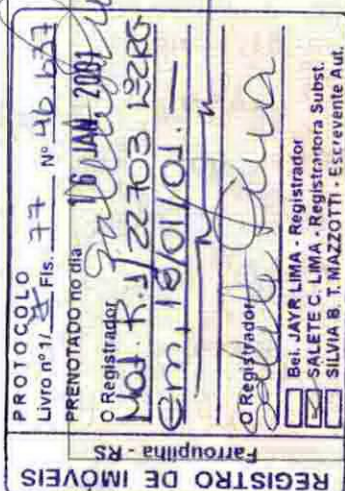 REGISTRO DE IMÓVEIS
Farroupilha - RS
PROTOCOLO
Livro nº 1/ Fls. 77 Nº 46.637
PRENOTADO no dia 16 JAN. 2001
O Registrador
Mat. R.1/22703 Lº2RG
Em, 18/01/01. —
O Registrador
Bel. JAYR LIMA - Registrador
SALETE C. LIMA - Registradora Subst.
SILVIA B. T. MAZZOTTI - Escrevente Aut.